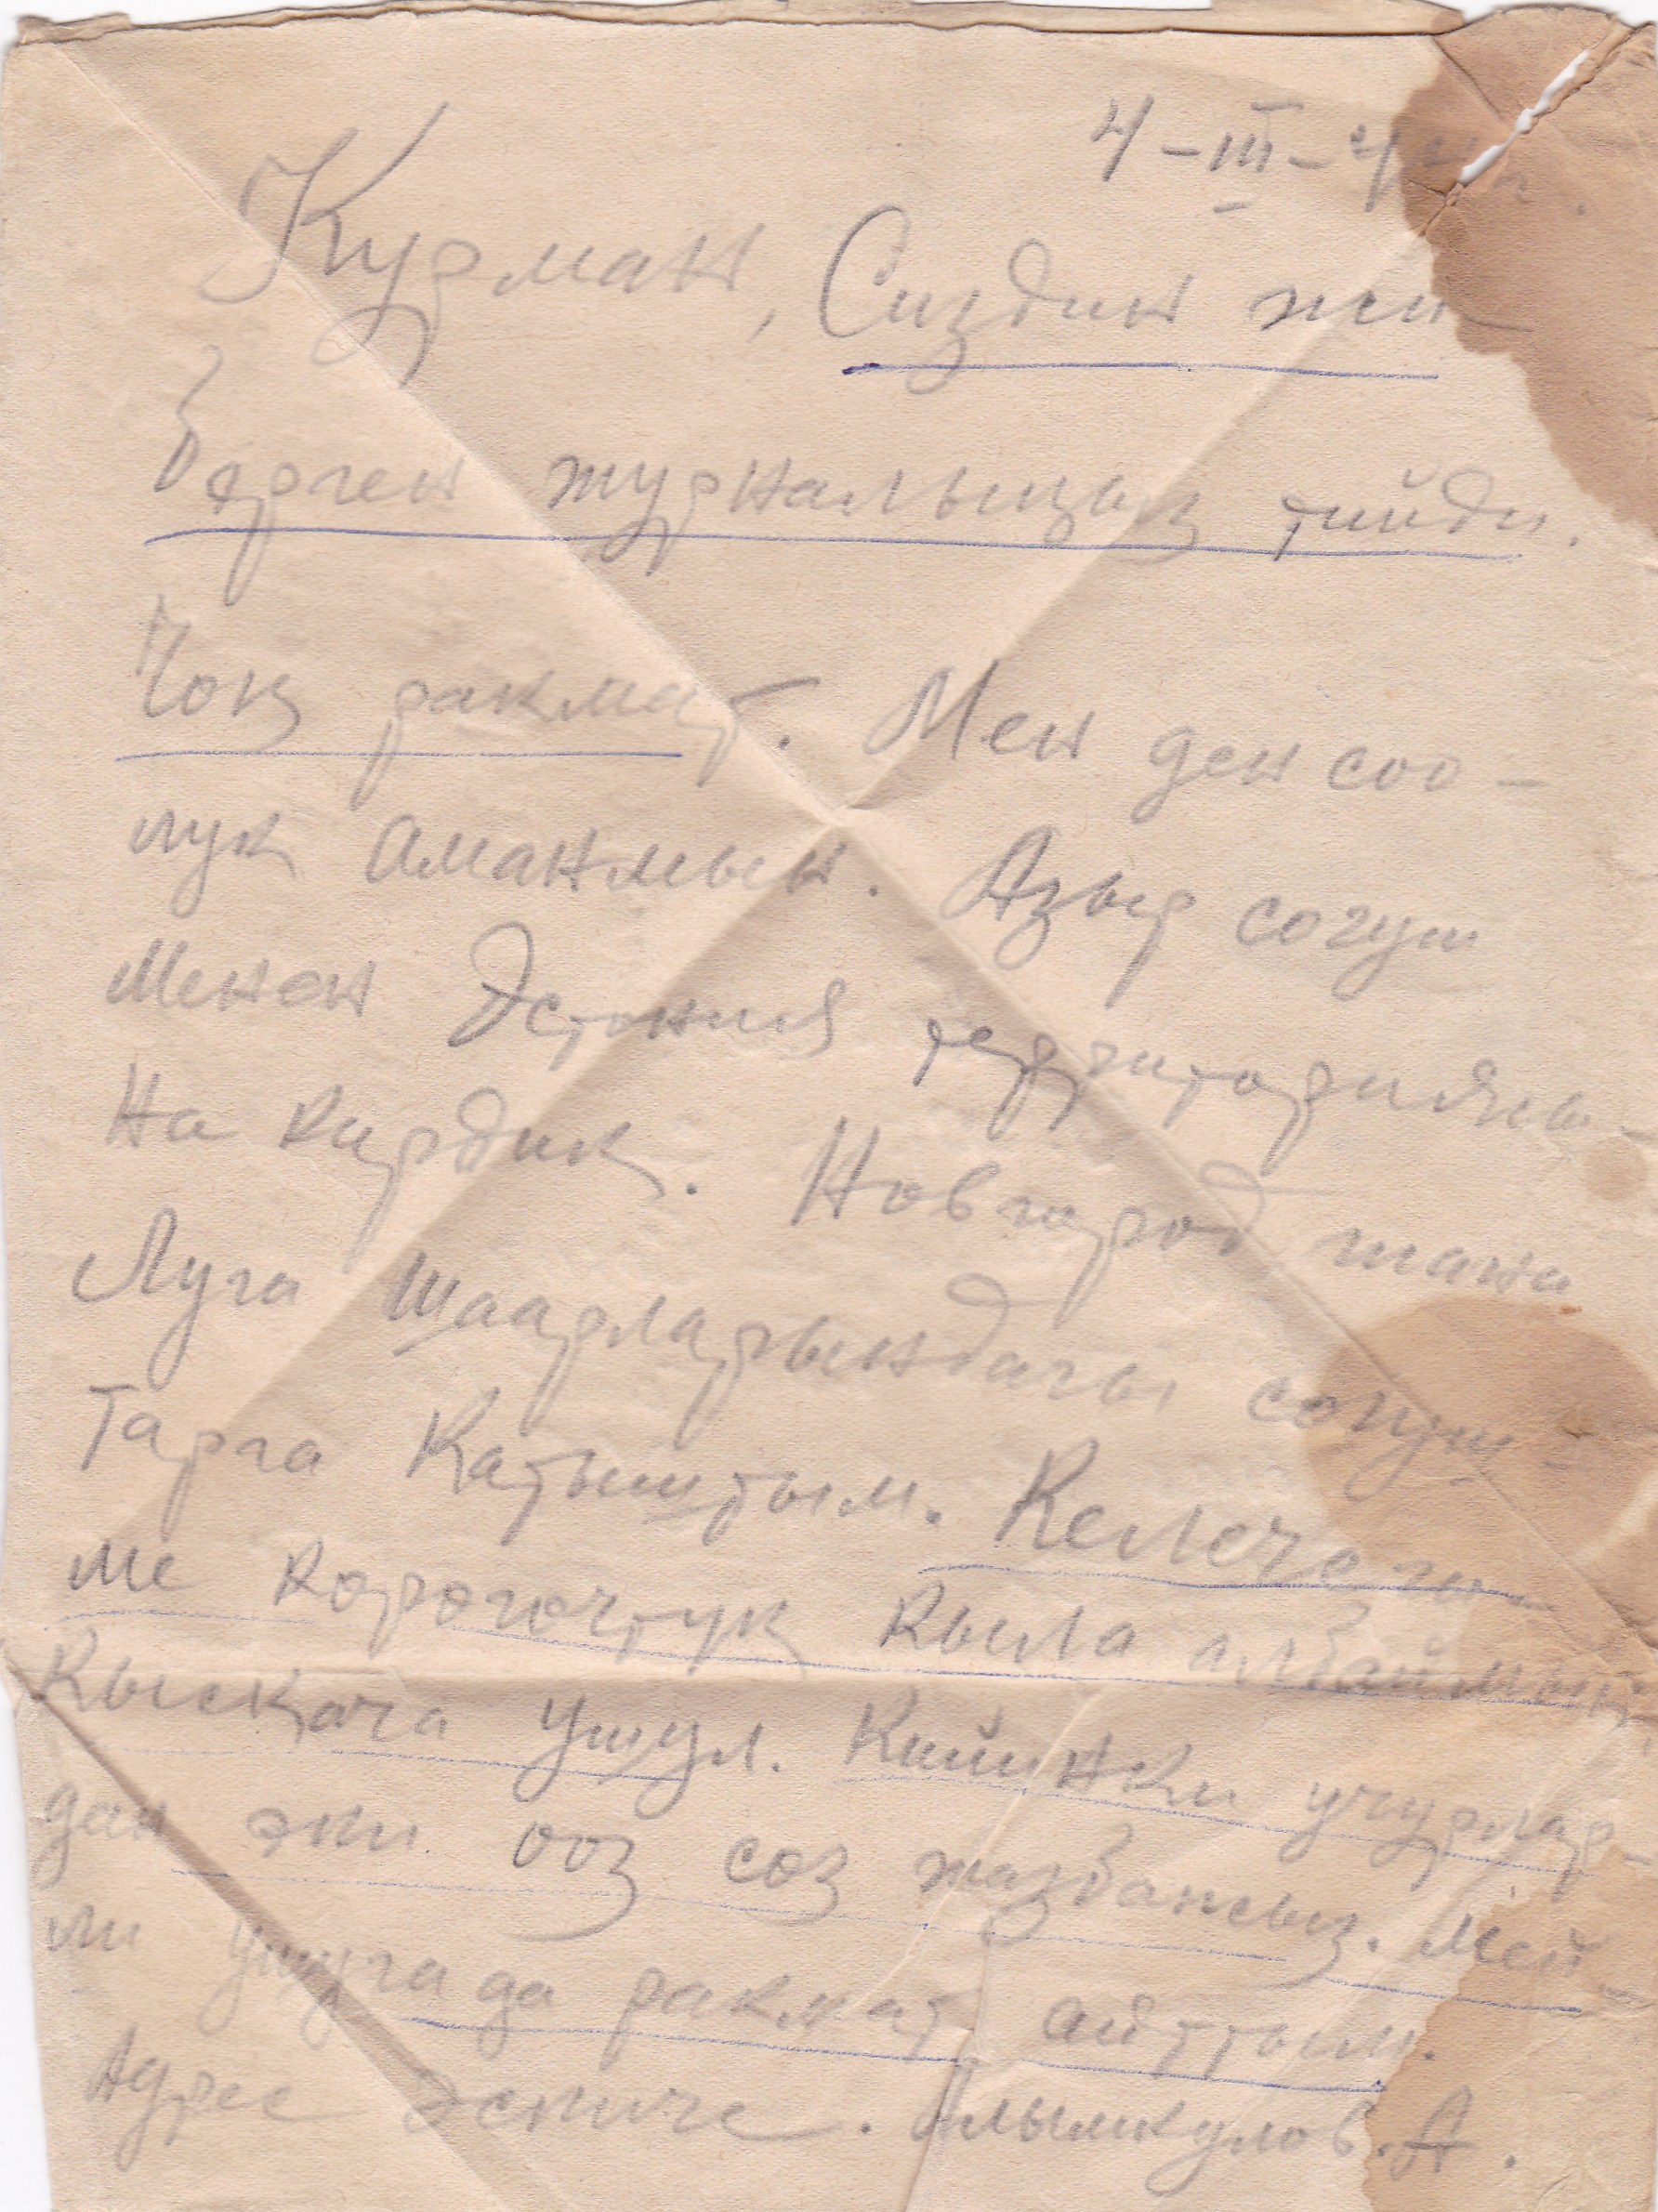 4-III-
Курман, Сиздин жи-
берген журналыңыз тийди.
Чоң ракмат. Мен ден соо-
лук аманмын. Азыр согуш
менен Эстония территориясы-
на кирдик. Новгород жана
Луга шаарларындагы согуш-
тарга катыштым. Келечеги-
ме корогочтук кыла албаймын
Кыскача ушул. Кийинки учурлар-
дан эки ооз соз жазбапсыз. Мей-
ли ушуга да ракмат айттым.
Адрес эскиче. Алымкулов. А.